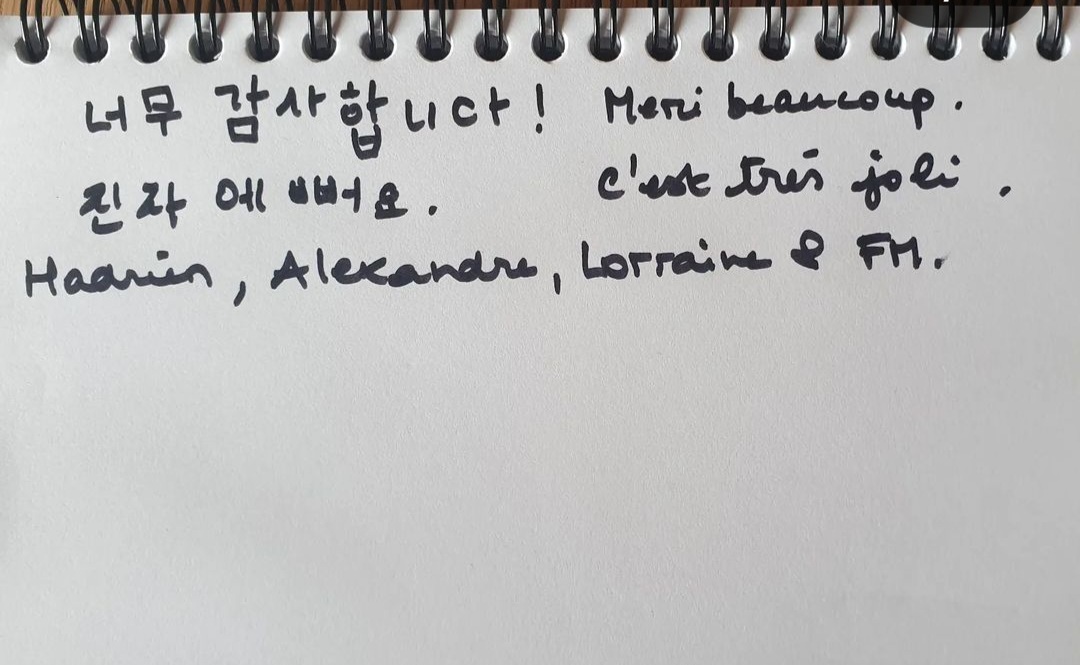 너무 감사합니다! Merci beaucoup.
진자 에뻐요. c'est très joli.
Hadrien, Alexandre, Lorraine & FM.